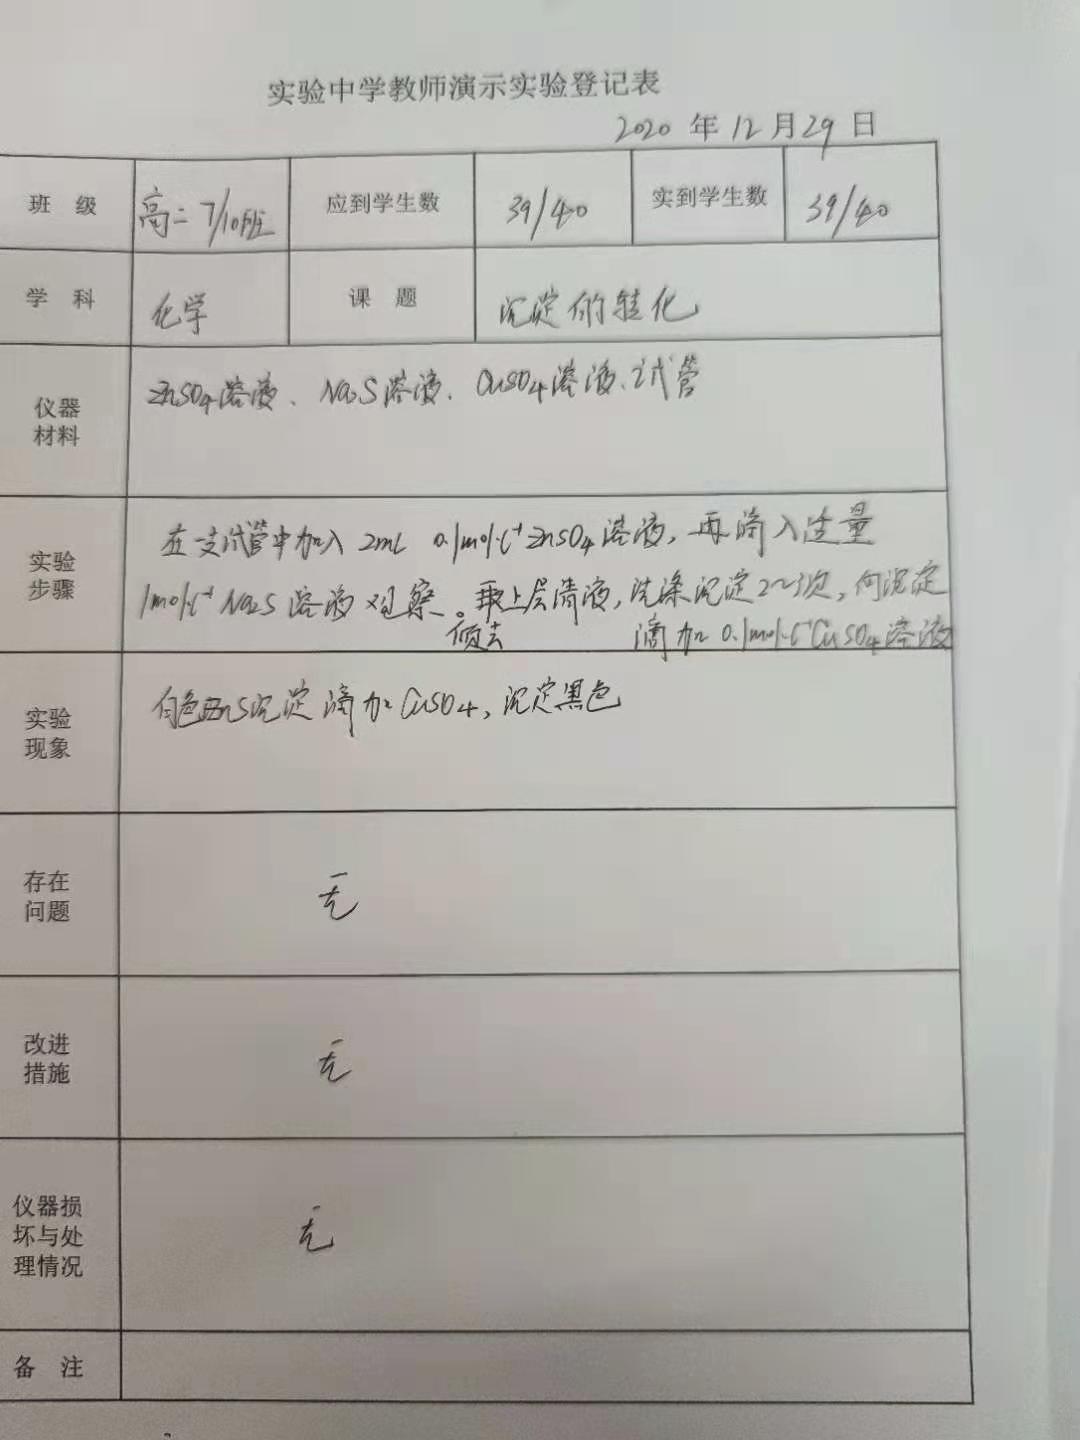 实验中学教师演示实验登记表
2020 年 12 月 29 日
班 级 高二7/10班 应到学生数 39/40 实到学生数 39/40
学 科 化学 课 题 沉淀的转化
仪器
材料
ZnSO4溶液、Na2S溶液、CuSO4溶液、试管
实验
步骤
在一支试管中加入 2mL 0.1mol·L⁻¹ ZnSO4溶液，再滴入过量
1mol·L⁻¹ Na2S 溶液观察。取上层清液，洗涤沉淀2~3次，向沉淀
倾去 滴加 0.1mol·L⁻¹CuSO4溶液
实验
现象
白色ZnS沉淀滴加CuSO4，沉淀黑色
存在
问题
无
改进
措施
无
仪器损
坏与处
理情况
无
备 注